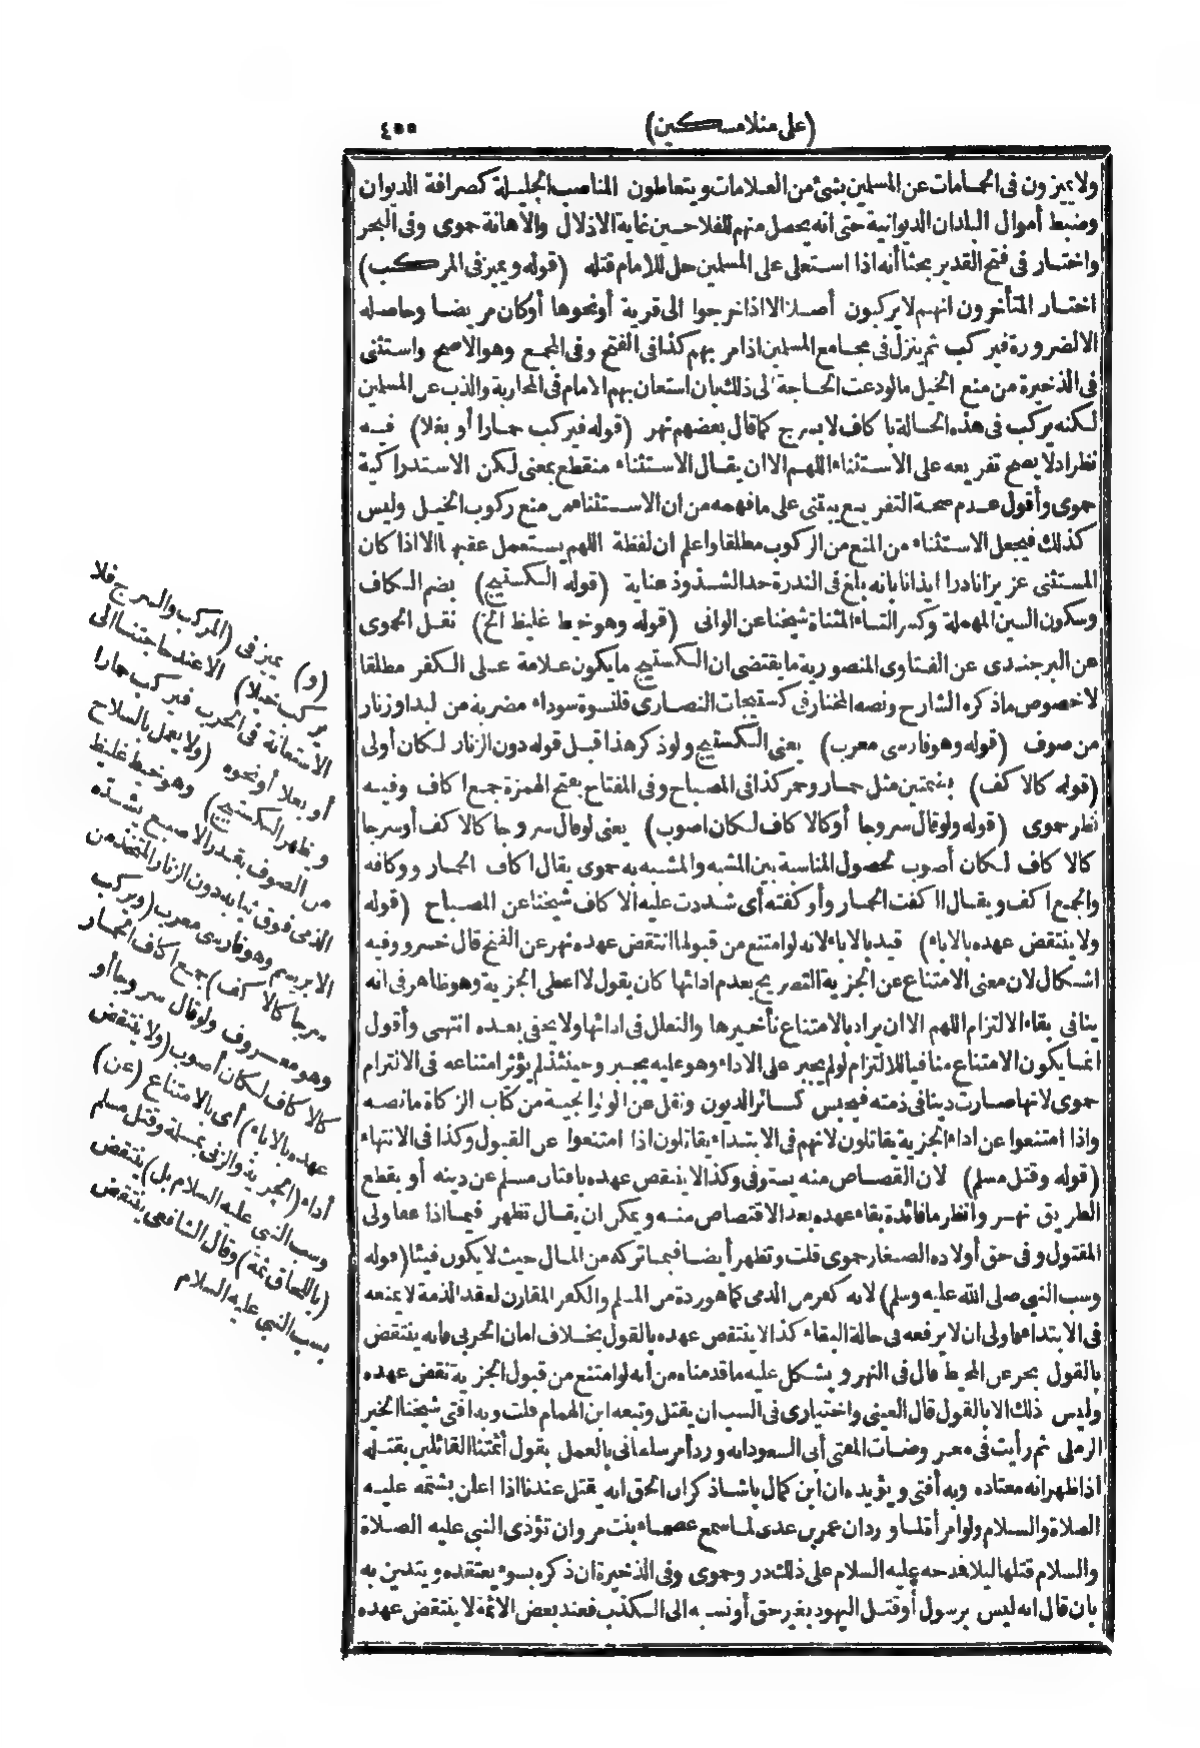 (على منلا مسكين)
٤٥٥
ولا يميزون فى الحمامات عن المسلمين بشئ من العلامات ويتعاطون المناصب الجليلة كصرافة الديوان
وضبط أموال البلدان الديوانية حتى انه يحصل منهم للفلاحين غاية الاذلال والاهانة حموى وفى البحر
واختار فى فتح القدير بحثا أنه اذا استعلى على المسلمين حل للامام قتله (قوله ويميز فى المركب)
اختار المتأخرون انهم لا يركبون أصلا الا اذا خرجوا الى قرية أو نحوها أو كان مريضا وحاصله
الا لضرورة فيركب ثم ينزل فى مجامع المسلمين اذا مر بهم كذا فى الفتح وفى المجمع وهو الاصح واستثنى
فى الذخيرة من منع الخيل ما لو دعت الحاجة الى ذلك بان استعان بهم الامام فى المحاربة والذب عن المسلمين
لكنه يركب فى هذه الحالة باكاف لا بسرج كما قال بعضهم نهر (قوله فيركب حمارا أو بغلا) فيه
نظر اذ لا يصح تفريعه على الاستثناء اللهم الا ان يقال الاستثناء منقطع بمعنى لكن الاستدراكية
حموى وأقول عدم صحة التفريع يبتنى على ما فهمه من ان الاستثناء من منع ركوب الخيل وليس
كذلك فيجعل الاستثناء من المنع من الركوب مطلقا واعلم ان لفظة اللهم يستعمل عقبها الا اذا كان
المستثنى عزيزا نادرا ايذانا بانه بلغ فى الندرة حد الشذوذ عناية (قوله الكستيج) بضم الكاف
وسكون السين المهملة وكسر التاء المثناة شيخنا عن الوانى (قوله وهو خيط غليظ الخ) نقل الحموى
عن البرجندى عن الفتاوى المنصورية ما يقتضى ان الكستيج ما يكون علامة على الكفر مطلقا
لا خصوص ما ذكره الشارح ونصه المختار فى كستيجات النصارى قلنسوة سوداء مضربة من لبد او زنار
من صوف (قوله وهو فارسى معرب) يعنى الكستيج ولو ذكر هذا قبل قوله دون الزنار لكان أولى
(قوله كالاكف) بضمتين مثل حمار وحمر كذا فى المصباح وفى المفتاح بفتح الهمزة جمع اكاف وفيه
نظر حموى (قوله ولو قال سروجا أو كالاكاف لكان اصوب) يعنى لو قال سروجا كالاكف أو سرجا
كالاكاف لكان أصوب لحصول المناسبة بين المشبه والمشبه به حموى يقال اكاف الحمار ووكافه
والجمع اكف ويقال اكفت الحمار وأوكفته أى شددت عليه الاكاف شيخنا عن المصباح (قوله
ولا ينتقض عهده بالاباء) قيد بالاباء لانه لو امتنع من قبولها انتقض عهده نهر عن الفتح قال خسرو وفيه
اشكال لان معنى الامتناع عن الجزية التصريح بعدم ادائها كان يقول لا اعطى الجزية وهو ظاهر فى انه
ينافى بقاء الالتزام اللهم الا ان يراد بالامتناع تأخيرها والتعلل فى ادائها ولا يخفى بعده انتهى وأقول
انما يكون الامتناع منافيا للالتزام لو لم يجبر على الاداء وهو عليه مجبر وحينئذ لم يؤثر امتناعه فى الالتزام
حموى لانها صارت دينا فى ذمته فيحبس كسائر الديون ونقل عن الولوالجية من كتاب الزكاة ما نصه
واذا امتنعوا عن اداء الجزية يقاتلون لانهم فى الابتداء يقاتلون اذا امتنعوا عن القبول وكذا فى الانتهاء
(قوله وقتل مسلم) لان القصاص منه يستوفى وكذا لا ينتقض عهده بافتان مسلم عن دينه أو بقطع
الطريق نهر وانظر ما فائدة بقاء عهده بعد الاقتصاص منه ويمكن ان يقال تظهر فيما اذا عفا ولى
المقتول وفى حق أولاده الصغار حموى قلت وتظهر أيضا فيما تركه من المال حيث لا يكون فيئا (قوله
وسب النبى صلى الله عليه وسلم) لانه كفر من الذمى كما هو ردة من المسلم والكفر المقارن لعقد الذمة لا يمنعه
فى الابتداء فأولى ان لا يرفعه فى حالة البقاء كذا لا ينتقض عهده بالقول بخلاف امان الحربى فانه ينتقض
بالقول بحر عن المحيط قال فى النهر ويشكل عليه ما قدمناه من أنه لو امتنع من قبول الجزية نقض عهده
وليس ذلك الا بالقول قال العينى واختيارى فى السب ان يقتل وتبعه ابن الهمام قلت وبه افتى شيخنا الخير
الرملى ثم رأيت فى معروضات المفتى أبى السعود انه ورد أمر سلطانى بالعمل بقول أئمتنا القائلين بقتله
اذا ظهر انه معتاده وبه أفتى ويؤيده ان ابن كمال باشا ذكر ان الحق انه يقتل عندنا اذا اعلن بشتمه عليه
الصلاة والسلام ولو امرأة لما وردان عمر بن عدى لما سمع عصماء بنت مروان تؤذى النبى عليه الصلاة
والسلام قتلها ليلا فمدحه عليه السلام على ذلك در وحموى وفى الذخيرة ان ذكره بسوء يعتقده ويتدين به
بان قال انه ليس برسول أو قتل اليهود بغير حق أو نسبه الى الكذب فعند بعض الائمة لا ينتقض عهده
(و) يميز فى (المركب والسرج فلا
يركب خيلا) الا عند حاجتنا الى
الاستعانة فى الحرب فيركب حمارا
أو بغلا أو نحوه (ولا يعمل بالسلاح
ويظهر الكستيج) وهو خيط غليظ
من الصوف بقدر الاصبع يشده
الذمى فوق ثيابه دون الزنار المتخذ من
الابريسم وهو فارسى معرب (ويركب
سرجا كالاكف) جمع اكاف الحمار
وهو معروف ولو قال سروجا أو
كالاكاف لكان أصوب (ولا ينتقض
عهده بالاباء) أى بالامتناع (عن)
أداء (الجزية والزنى بمسلمة وقتل مسلم
وسب النبى عليه السلام بل) ينتقض
(باللحاق ثمة) وقال الشافعى ينتقض
بسب النبى عليه السلام